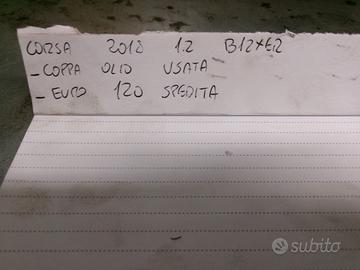 CORSA 2018 1.2 B12XER
- COPPA OLIO USATA
- EURO 120 SPEDITA
subito